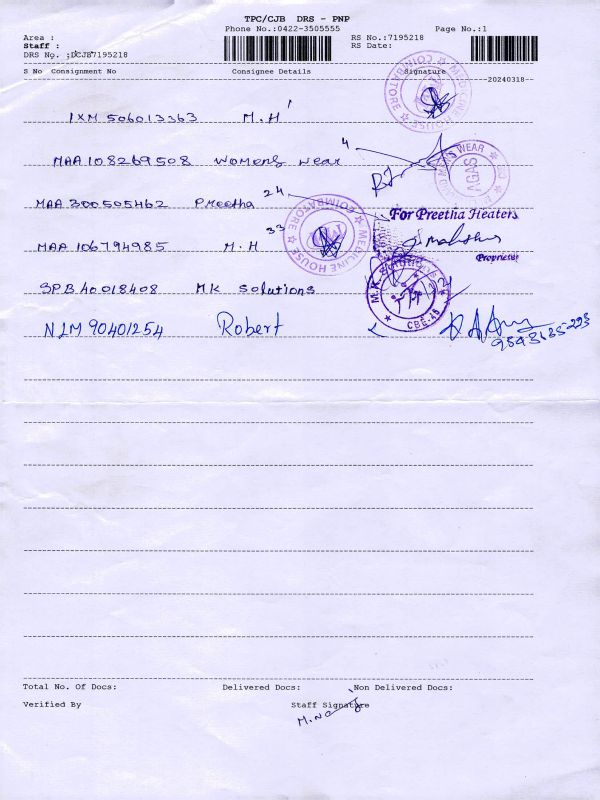 TPC/CJB DRS - PNP
Phone No.:0422-3505555
Page No.:1
Area :
RS No.:7195218
Staff :
RS Date:
DRS No. :DCJB7195218
S No Consignment No Consignee Details Signature
20240318
IXM 506013363 M.H
MAA 108269508 Womens wear 4
MAA 300505462 Preetha 24
For Preetha Heaters
Proprietor
MAA 106794985 M.H 33
MEDICINE HOUSE COIMBATORE
SPB40018408 MK Solutions
CBE-45
NLM 90401254 Robert
Total No. Of Docs: Delivered Docs: Non Delivered Docs:
Verified By Staff Signature